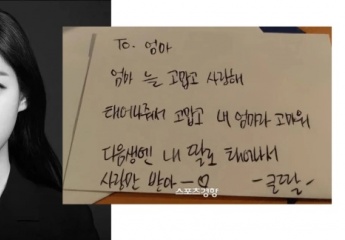 To. 엄마
엄마 늘 고맙고 사랑해
태어나줘서 고맙고 내 엄마라 고마워
다음생엔 내 딸로 태어나서
사랑만 받아 ─♡
-큰딸-
스포츠경향